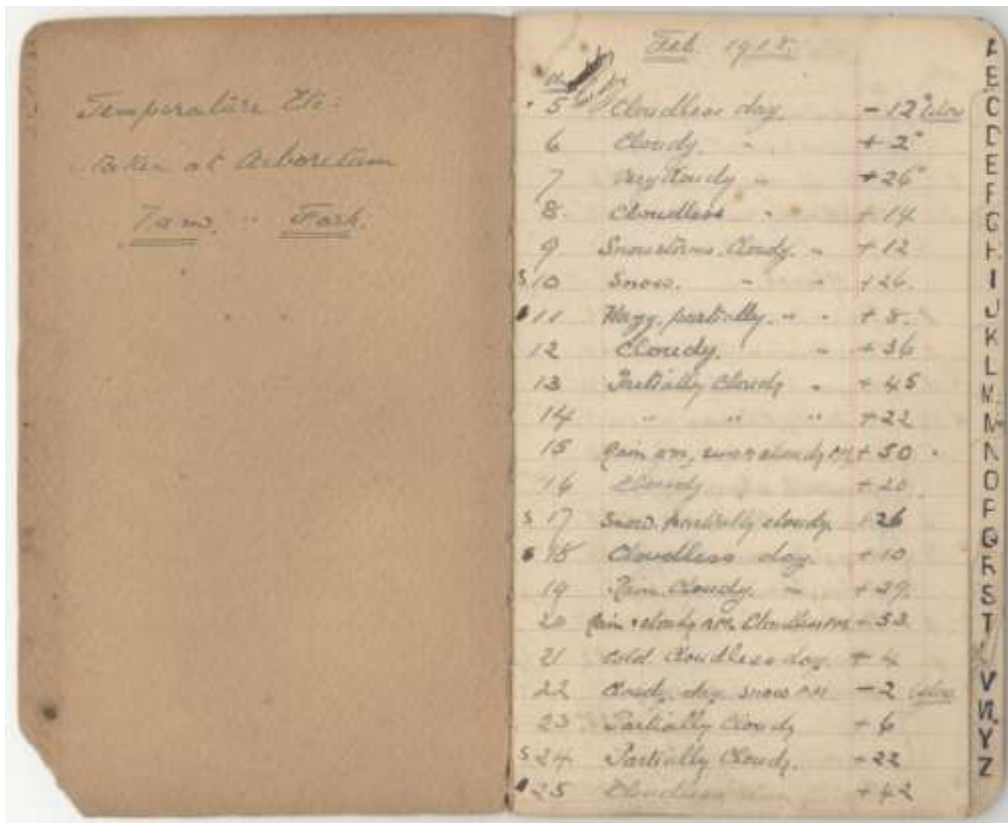 Temperature Etc:
Taken at Arboretum
7 a.m. " Fash.
Feb. 1918.
5 Cloudless day. - 12° below
6 Cloudy. " + 2°
7 Very Cloudy " + 26°
8. Cloudless " + 14
9 Snowstorms. Cloudy. " + 12
S 10 Snow. " " + 26.
11 Hazy. partially. " " + 8.
12 Cloudy. " + 36
13 Partially Cloudy " + 45
14 " " " + 22
15 Rain am, cloudy PM + 50
16 Cloudy + 20
S 17 Snow. partially cloudy. 26
18 Cloudless day + 10
19 Rain. Cloudy. " + 39.
20 Rain & cloudy Cloudless PM + 53
21 Cold Cloudless day. + 4
22 Cloudy day, snow PM - 2 below
23 Partially Cloudy + 6
S 24 Partially Cloudy. + 22
25 Cloudless + 42
A
B
C
D
E
F
G
H
I
J
K
L
M
N
O
P
Q
R
S
T
U
V
W
Y
Z